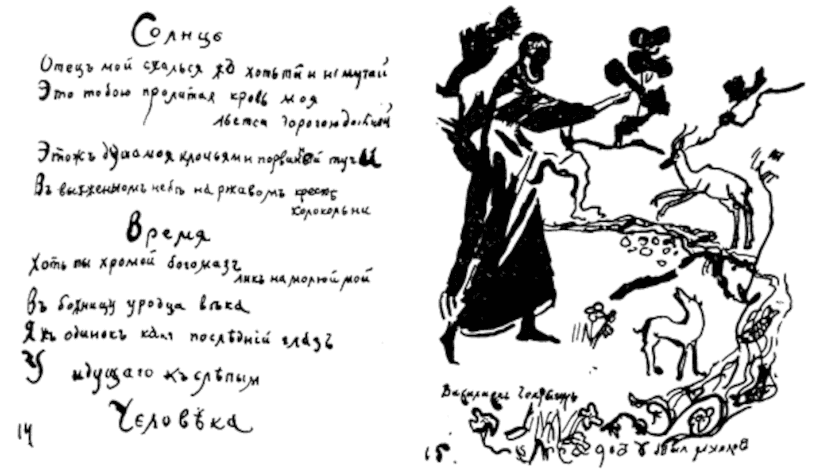 Солнце
Отецъ мой сжалься хоть ты и не мучай
Это тобою пролитая кровь моя
льется дорогою дольней
Этожъ душа моя клочьями порванной тучи
Въ выжженномъ небѣ на ржавомъ крестѣ
колокольни
Время
Хоть ты хромой богомазъ
ликъ намалюй мой
Въ божницу уродца вѣка
Я одинокъ какъ послѣдній глазъ
У
идущаго къ слѣпымъ
Человѣка
14
Чекрыгинъ
15.